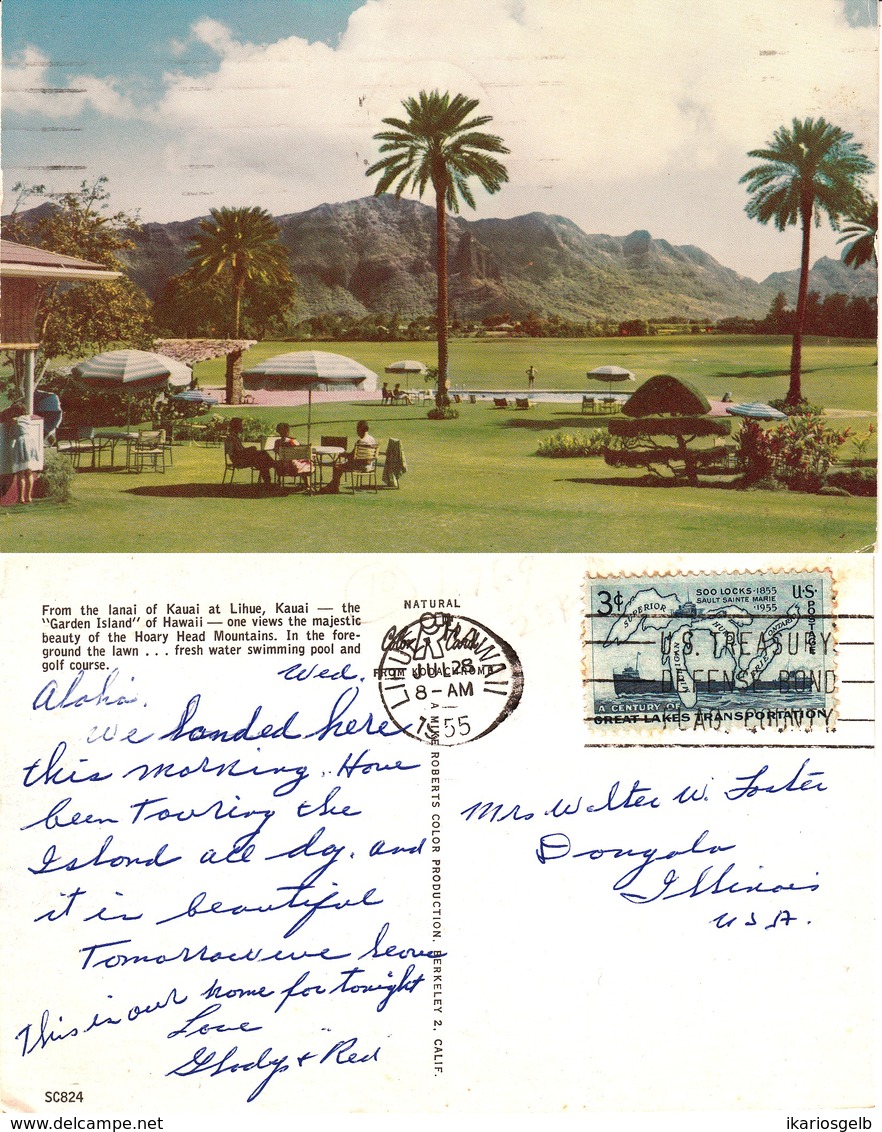 From the lanai of Kauai at Lihue, Kauai — the
"Garden Island" of Hawaii — one views the majestic
beauty of the Hoary Head Mountains. In the fore-
ground the lawn . . . fresh water swimming pool and
golf course.
NATURAL
Color Card
FROM KODACHROME
LIHUE HAWAII
JUL 28
8 – AM
1955
3¢
SOO LOCKS · 1855
SAULT SAINTE MARIE
· 1955
U.S.
POSTAGE
SUPERIOR
HURON
ONTARIO
ERIE
A CENTURY OF
GREAT LAKES TRANSPORTATION
U.S. TREASURY
DEFENSE BOND
Wed.
Aloha.
We landed here
this morning. Have
been Touring the
Island all day. and
it is beautiful
Tomorrow we leave
This is our home for tonight
Love
Gladys + Red
A MIKE ROBERTS COLOR PRODUCTION, BERKELEY 2, CALIF.
Mrs Walter W. Foster
Dongola
Illinois
USA.
SC824
www.delcampe.net
ikariosgelb